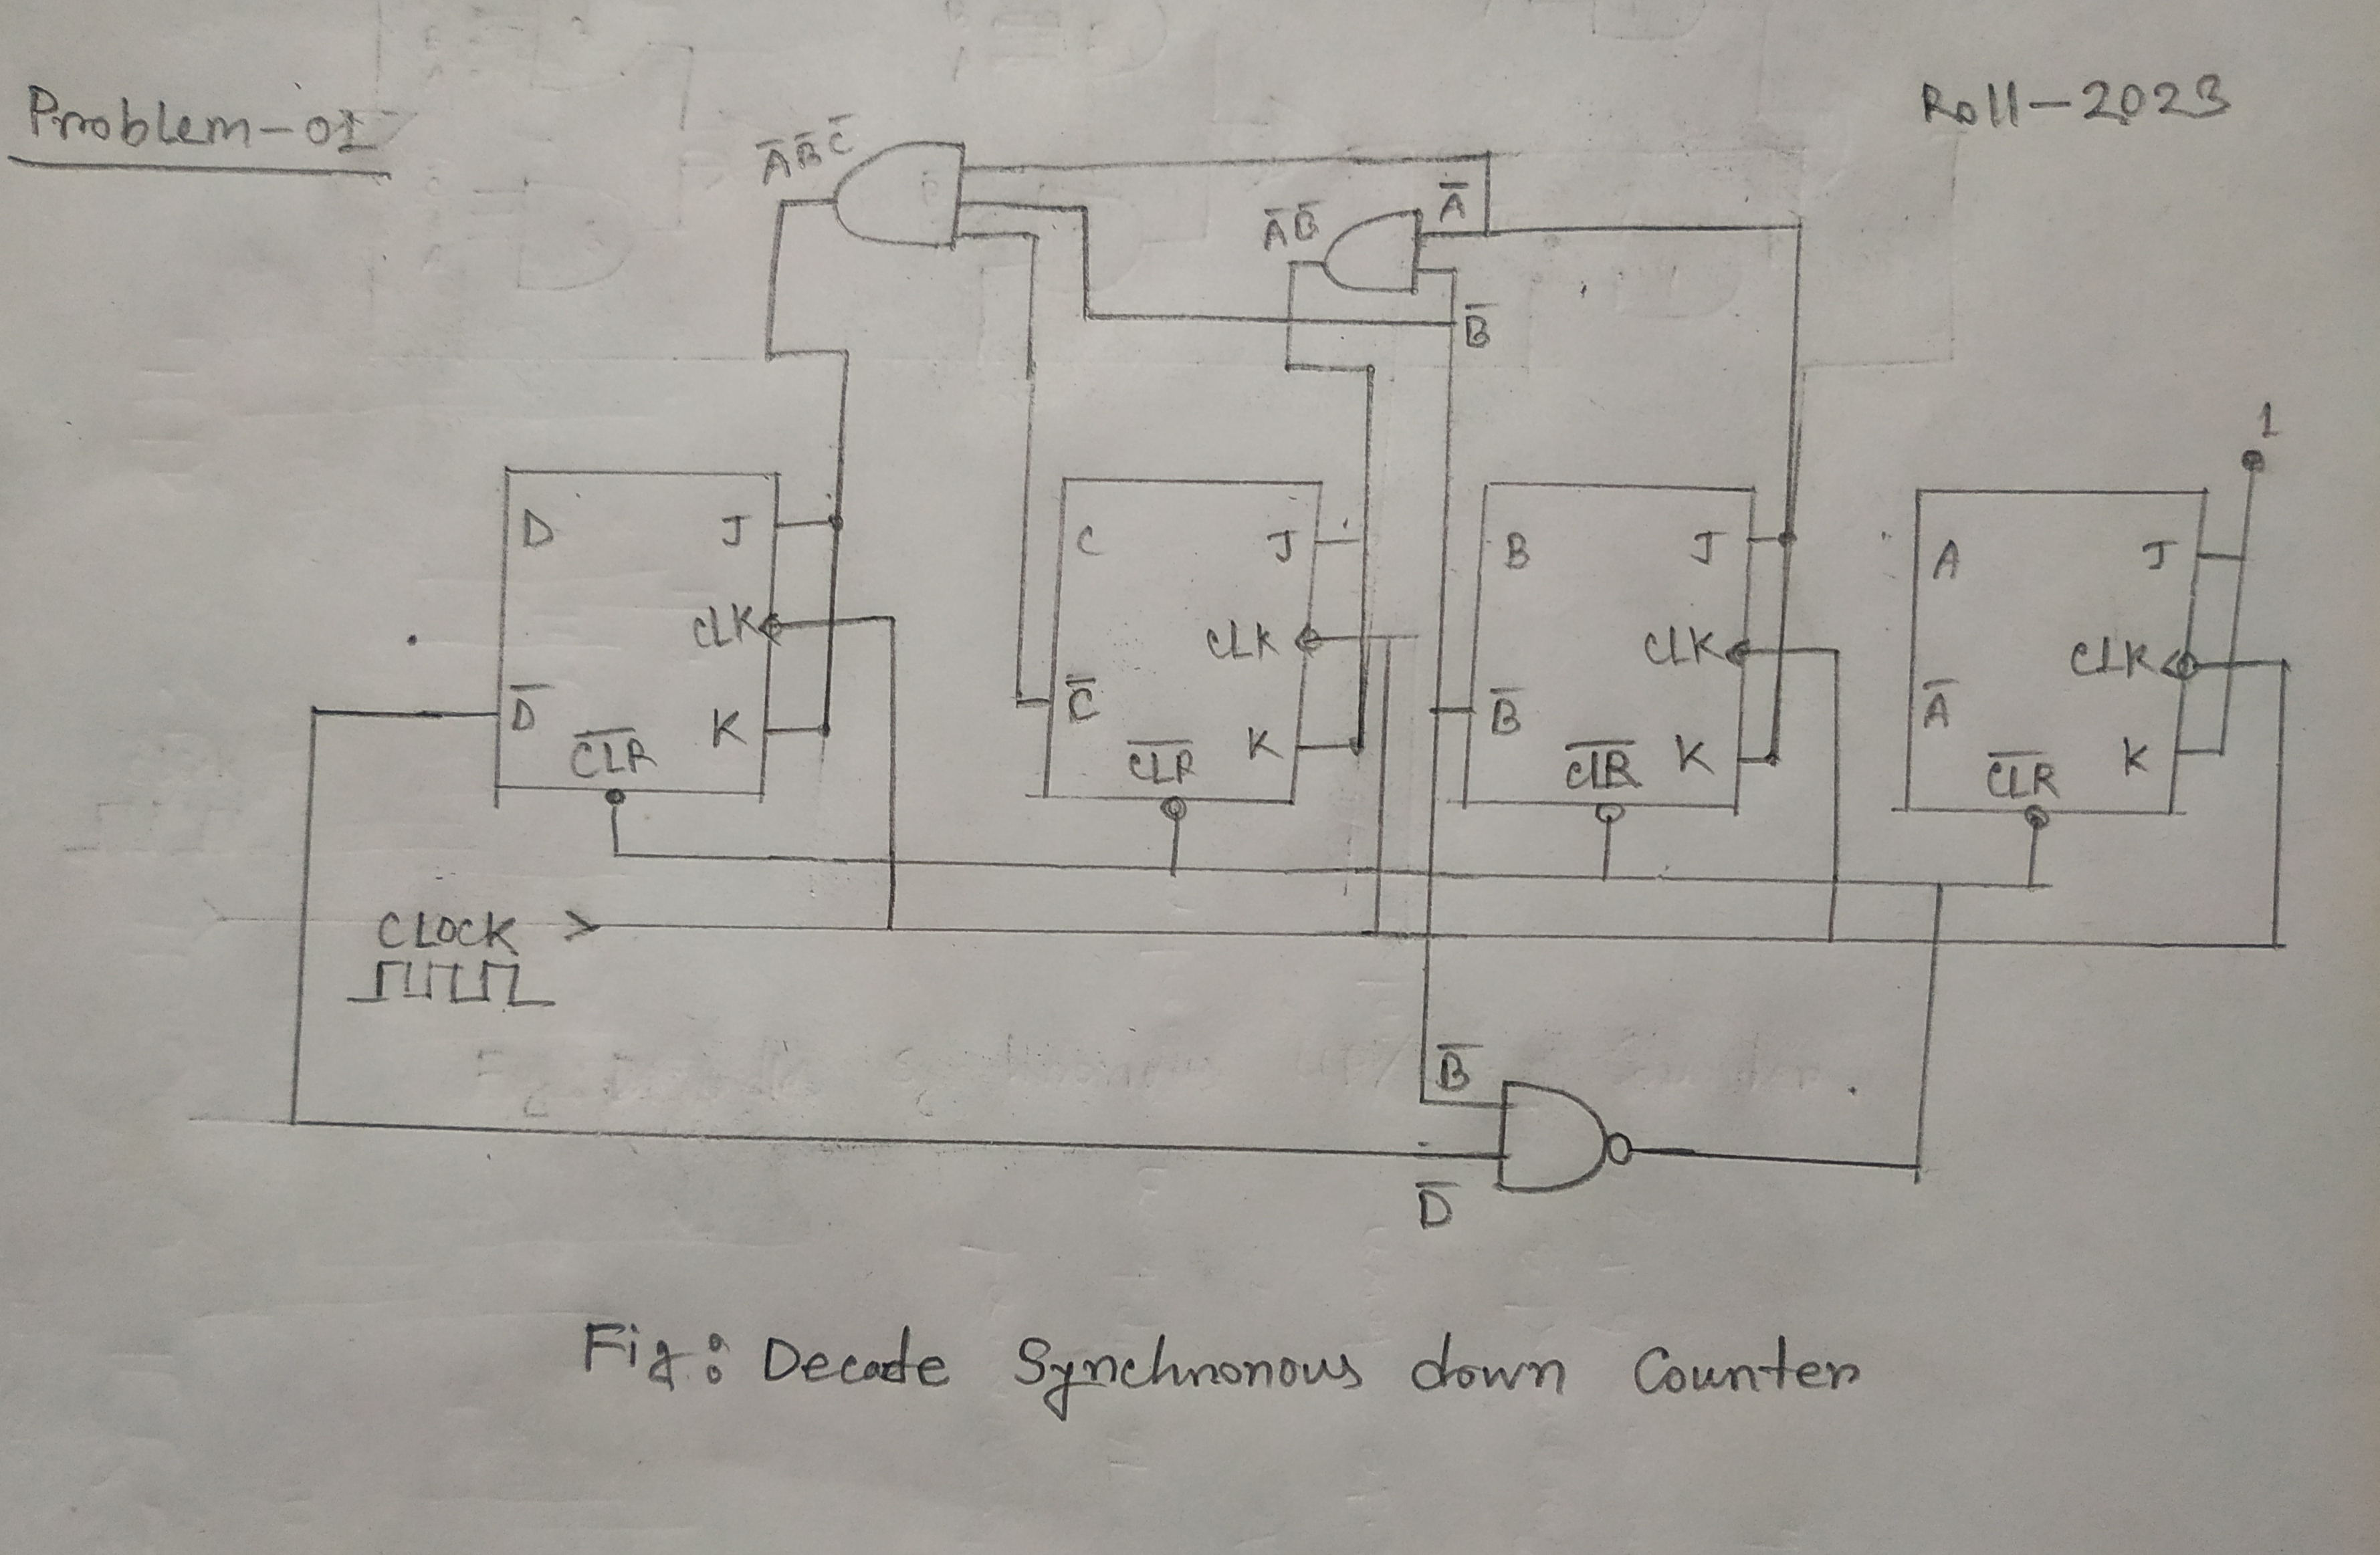 Problem-01
Roll-2023
A̅B̅C̅
A̅B̅
A̅
B̅
1
D J
CLK
D̅
C̅L̅R̅ K
C J
CLK
C̅
C̅L̅R̅ K
B J
CLK
B̅
C̅L̅R̅ K
A J
CLK
A̅
C̅L̅R̅ K
CLOCK >
B̅
D̅
Fig: Decade Synchronous down Counter